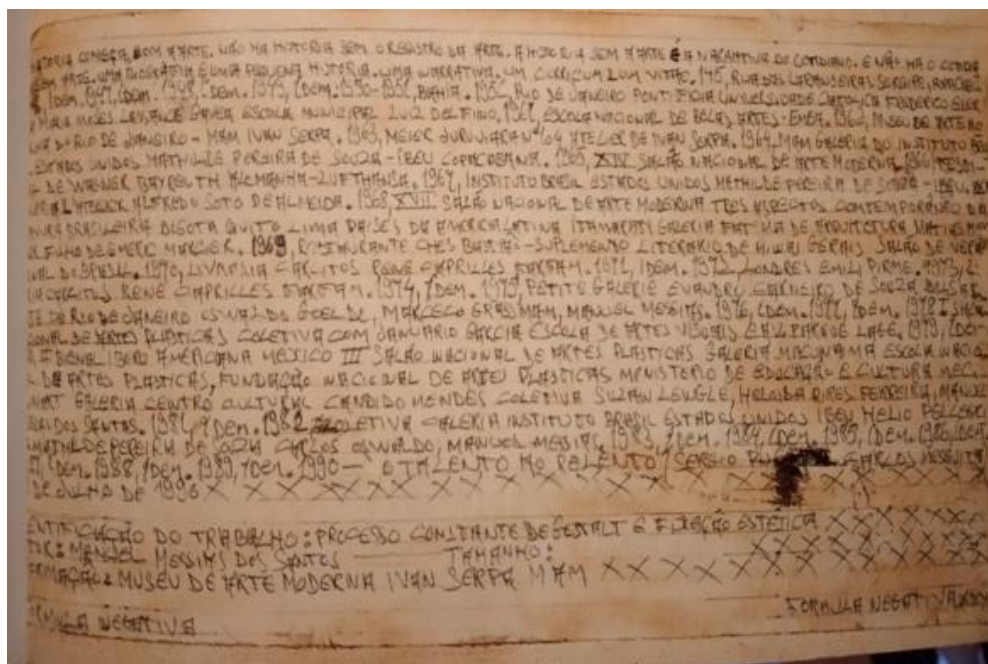 HISTORIA COMEÇA COM A ARTE. NÃO HA HISTORIA SEM O REGISTRO DA ARTE. A HISTORIA SEM A ARTE É A NARRATIVA DO COTIDIANO. E NÃO HA O COTIDIA
SEM ARTE. UMA BIOGRAFIA É UMA PEQUENA HISTORIA. UMA NARRATIVA. UM CURRICULUM VITAE. RUA DOS LARANJEIRAS SERGIPE, ARACAJU
IDEM. 1947, IDEM. 1948, IDEM. 1949, IDEM. 1950-1951, BAHIA. 1952, RIO DE JANEIRO PONTIFICIA UNIVERSIDADE CATOLICA
GAVEA ESCOLA MUNICIPAL LUIZ DELFINO, 1961, ESCOLA NACIONAL DE BELAS ARTES-ENBA. 1962, MUSEU DE ARTE MO
DO RIO DE JANEIRO - MAM IVAN SERPA. 1963, MEIER Nº 104 ATELIER DE IVAN SERPA. 1964, MAM GALERIA DO INSTITUTO BRA
ESTADOS UNIDOS MATHILDE PEREIRA DE SOUZA - IBEU COPACABANA. 1965, XIV SALÃO NACIONAL DE ARTE MODERNA. 1966
DE WAGNER BAYREUTH ALEMANHA-LUFTHANSA. 1967, INSTITUTO BRASIL ESTADOS UNIDOS MATHILDE PEREIRA DE SOUZA - IBEU.
ALFREDO SOTO DE ALMEIDA. 1968, XVII SALÃO NACIONAL DE ARTE MODERNA TRES ASPECTOS CONTEMPORANEO DA
BRASILEIRA BOGOTA QUITO LIMA PAISES DA AMERICA LATINA ITAMARATI GALERIA FATIMA DE ARQUITETURA
FILHO DE EMERIC MARCIER. 1969, RESTAURANTE CHES BASTAS-SUPLEMENTO LITERARIO DE MINAI GERAIS SALÃO DE VERÃ
DO BRASIL. 1970, LIVRARIA CARLITOS RENE CAPRILLES FARFAM. 1971, IDEM. 1972, LONDRES EMIL PIRME. 1973, L
CARLITOS RENE CAPRILLES FARFAM. 1974, IDEM. 1975 PETITE GALERIE EVANDRO CARNEIRO DE SOUZA BOLSA
DE RIO DE JANEIRO OSWALDO GOELDI, MARCELO GRASSMAM, MANUEL MESSIAS. 1976, IDEM. 1977, IDEM. 1978 I SALÃ
IONAL DE ARTES PLASTICAS COLETIVA COM JANUARIO GARCIA ESCOLA DE ARTES VISUAIS EAV PARQUE LAGE. 1979, IDE
II BIENAL IBERO AMERICANA MEXICO III SALÃO NACIONAL DE ARTES PLASTICAS GALERIA MACUNAIMA ESCOLA NACIO
L DE ARTES PLASTICAS, FUNDAÇÃO NACIONAL DE ARTES PLASTICAS MINISTERIO DE EDUCAÇÃO E CULTURA MEC.
GALERIA CENTRO CULTURAL CANDIDO MENDES COLETIVA SUZAN LENGLE, HELOISA PIRES FERREIRA, MANUEL
DOS SANTOS. 1981, IDEM. 1982 COLETIVA GALERIA INSTITUTO BRASIL ESTADOS UNIDOS IBEU HELIO
MATHILDE PEREIRA DE SOUZA CARLOS OSWALDO, MANUEL MESSIAS. 1983, IDEM. 1984, IDEM. 1985, IDEM. 1986, IDEM.
IDEM. 1988, IDEM. 1989, IDEM. 1990 - O TALENTO AO RELENTO, SERGIO CARLOS MESQUITA
DE JULHO DE 1996 X X X X X X X X X X X X X X X X X X X
ENTIFICAÇÃO DO TRABALHO: PROCESSO CONSTANTE DE GESTALT E FIXAÇÃO ESTÉTICA X X X X X X X
TOR: MANUEL MESSIAS DOS SANTOS TAMANHO: X X X X X X X X X
ORMAÇAL: MUSEU DE ARTE MODERNA IVAN SERPA MAM X X X X X X X X X X X X X
FORMULA NEGATIVA FORMULA NEGATIVA